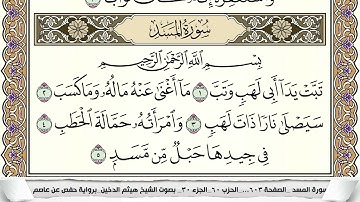 وَاسْتَغْفِرْهُ إِنَّهُ كَانَ تَوَّابًا
سُورَةُ المَسَدِ
بِسْمِ اللَّهِ الرَّحْمَٰنِ الرَّحِيمِ
تَبَّتْ يَدَا أَبِي لَهَبٍ وَتَبَّ ١ مَا أَغْنَىٰ عَنْهُ مَالُهُ وَمَا كَسَبَ ٢
سَيَصْلَىٰ نَارًا ذَاتَ لَهَبٍ ٣ وَامْرَأَتُهُ حَمَّالَةَ الْحَطَبِ ٤
فِي جِيدِهَا حَبْلٌ مِّن مَّسَدٍ ٥
سورة المسد _الصفحة ٦٠٣_... الحزب ٦٠_ الجزء ٣٠_ بصوت الشيخ هيثم الدخين_ برواية حفص عن عاصم